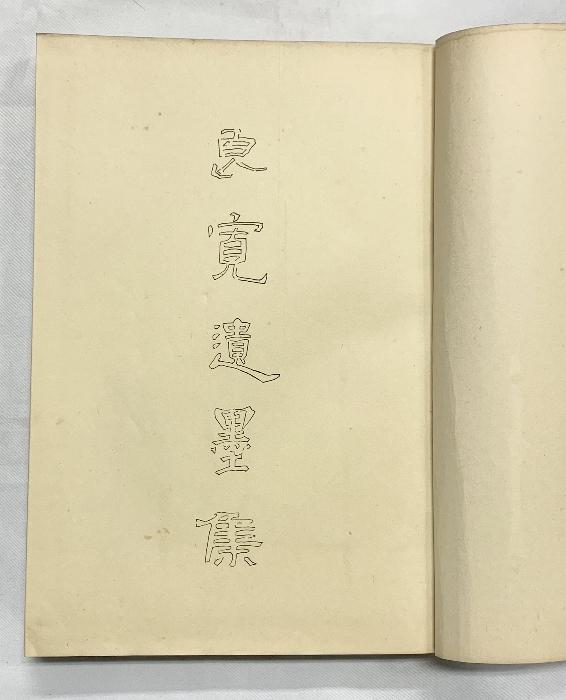 良寛遺墨集